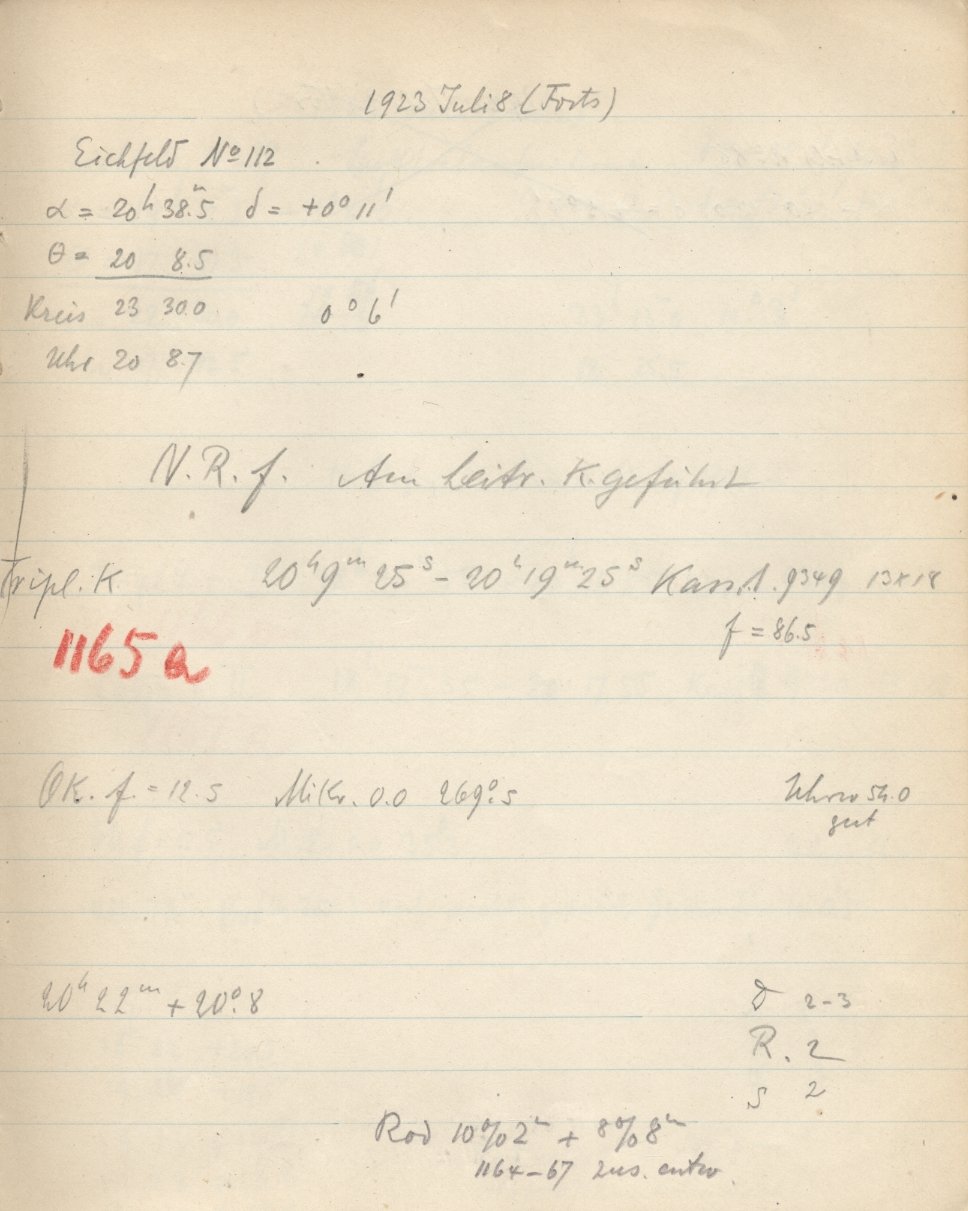 1923 Juli 8 (Forts)
Eichfeld No 112
α = 20h 38.m5 δ = +0° 11'
θ = 20 8.5
Kreis 23 30.0 0° 6'
Uhr 20 8.7
V.R.f. Am Leitr. K. geführt
Tripl. K. 20h 9m 25s – 20h 19m 25s Kass. 1. 9349 13x18
f = 86.5
1165a
OK. f. = 12.5 Mikr. 0.0 269°.5 Uhrw 54.0
gut
20h 22m + 20°.8 D 2-3
R. 2
S 2
Rod 10% 2m + 8% 8m
1164–67 zus. entw.